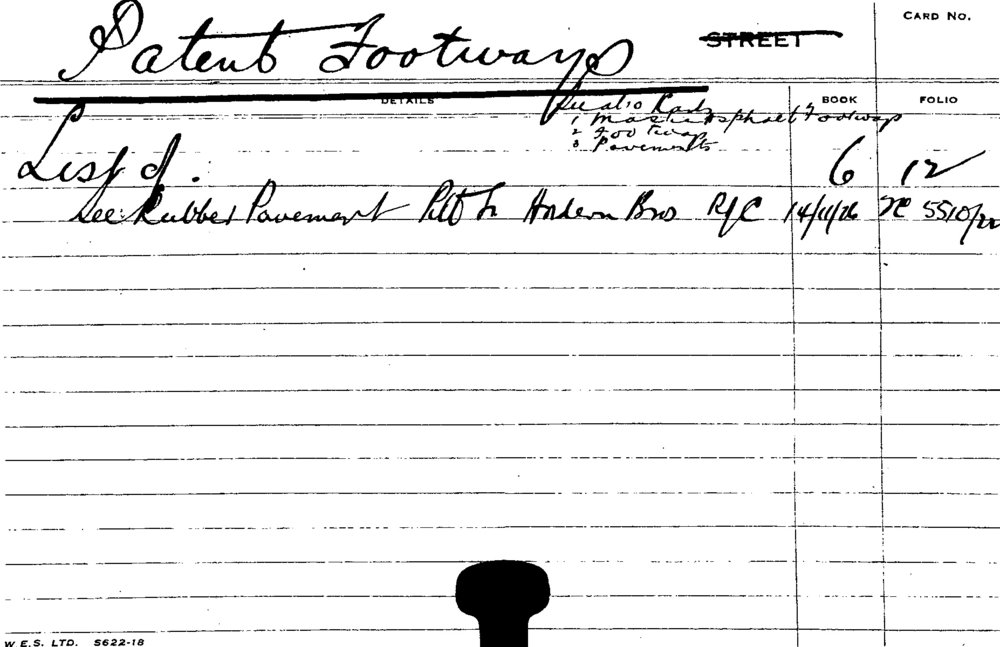 CARD NO.
Patent Footways STREET
DETAILS BOOK FOLIO
See also Cards
1 Mastic Asphalt Footways
2 Footways
3 Pavements
List of. 6 12
See Rubber Pavement Pitt St Hordern Bros R/C 14/11/26 TC 5510/22
W.E.S. LTD. S622-18